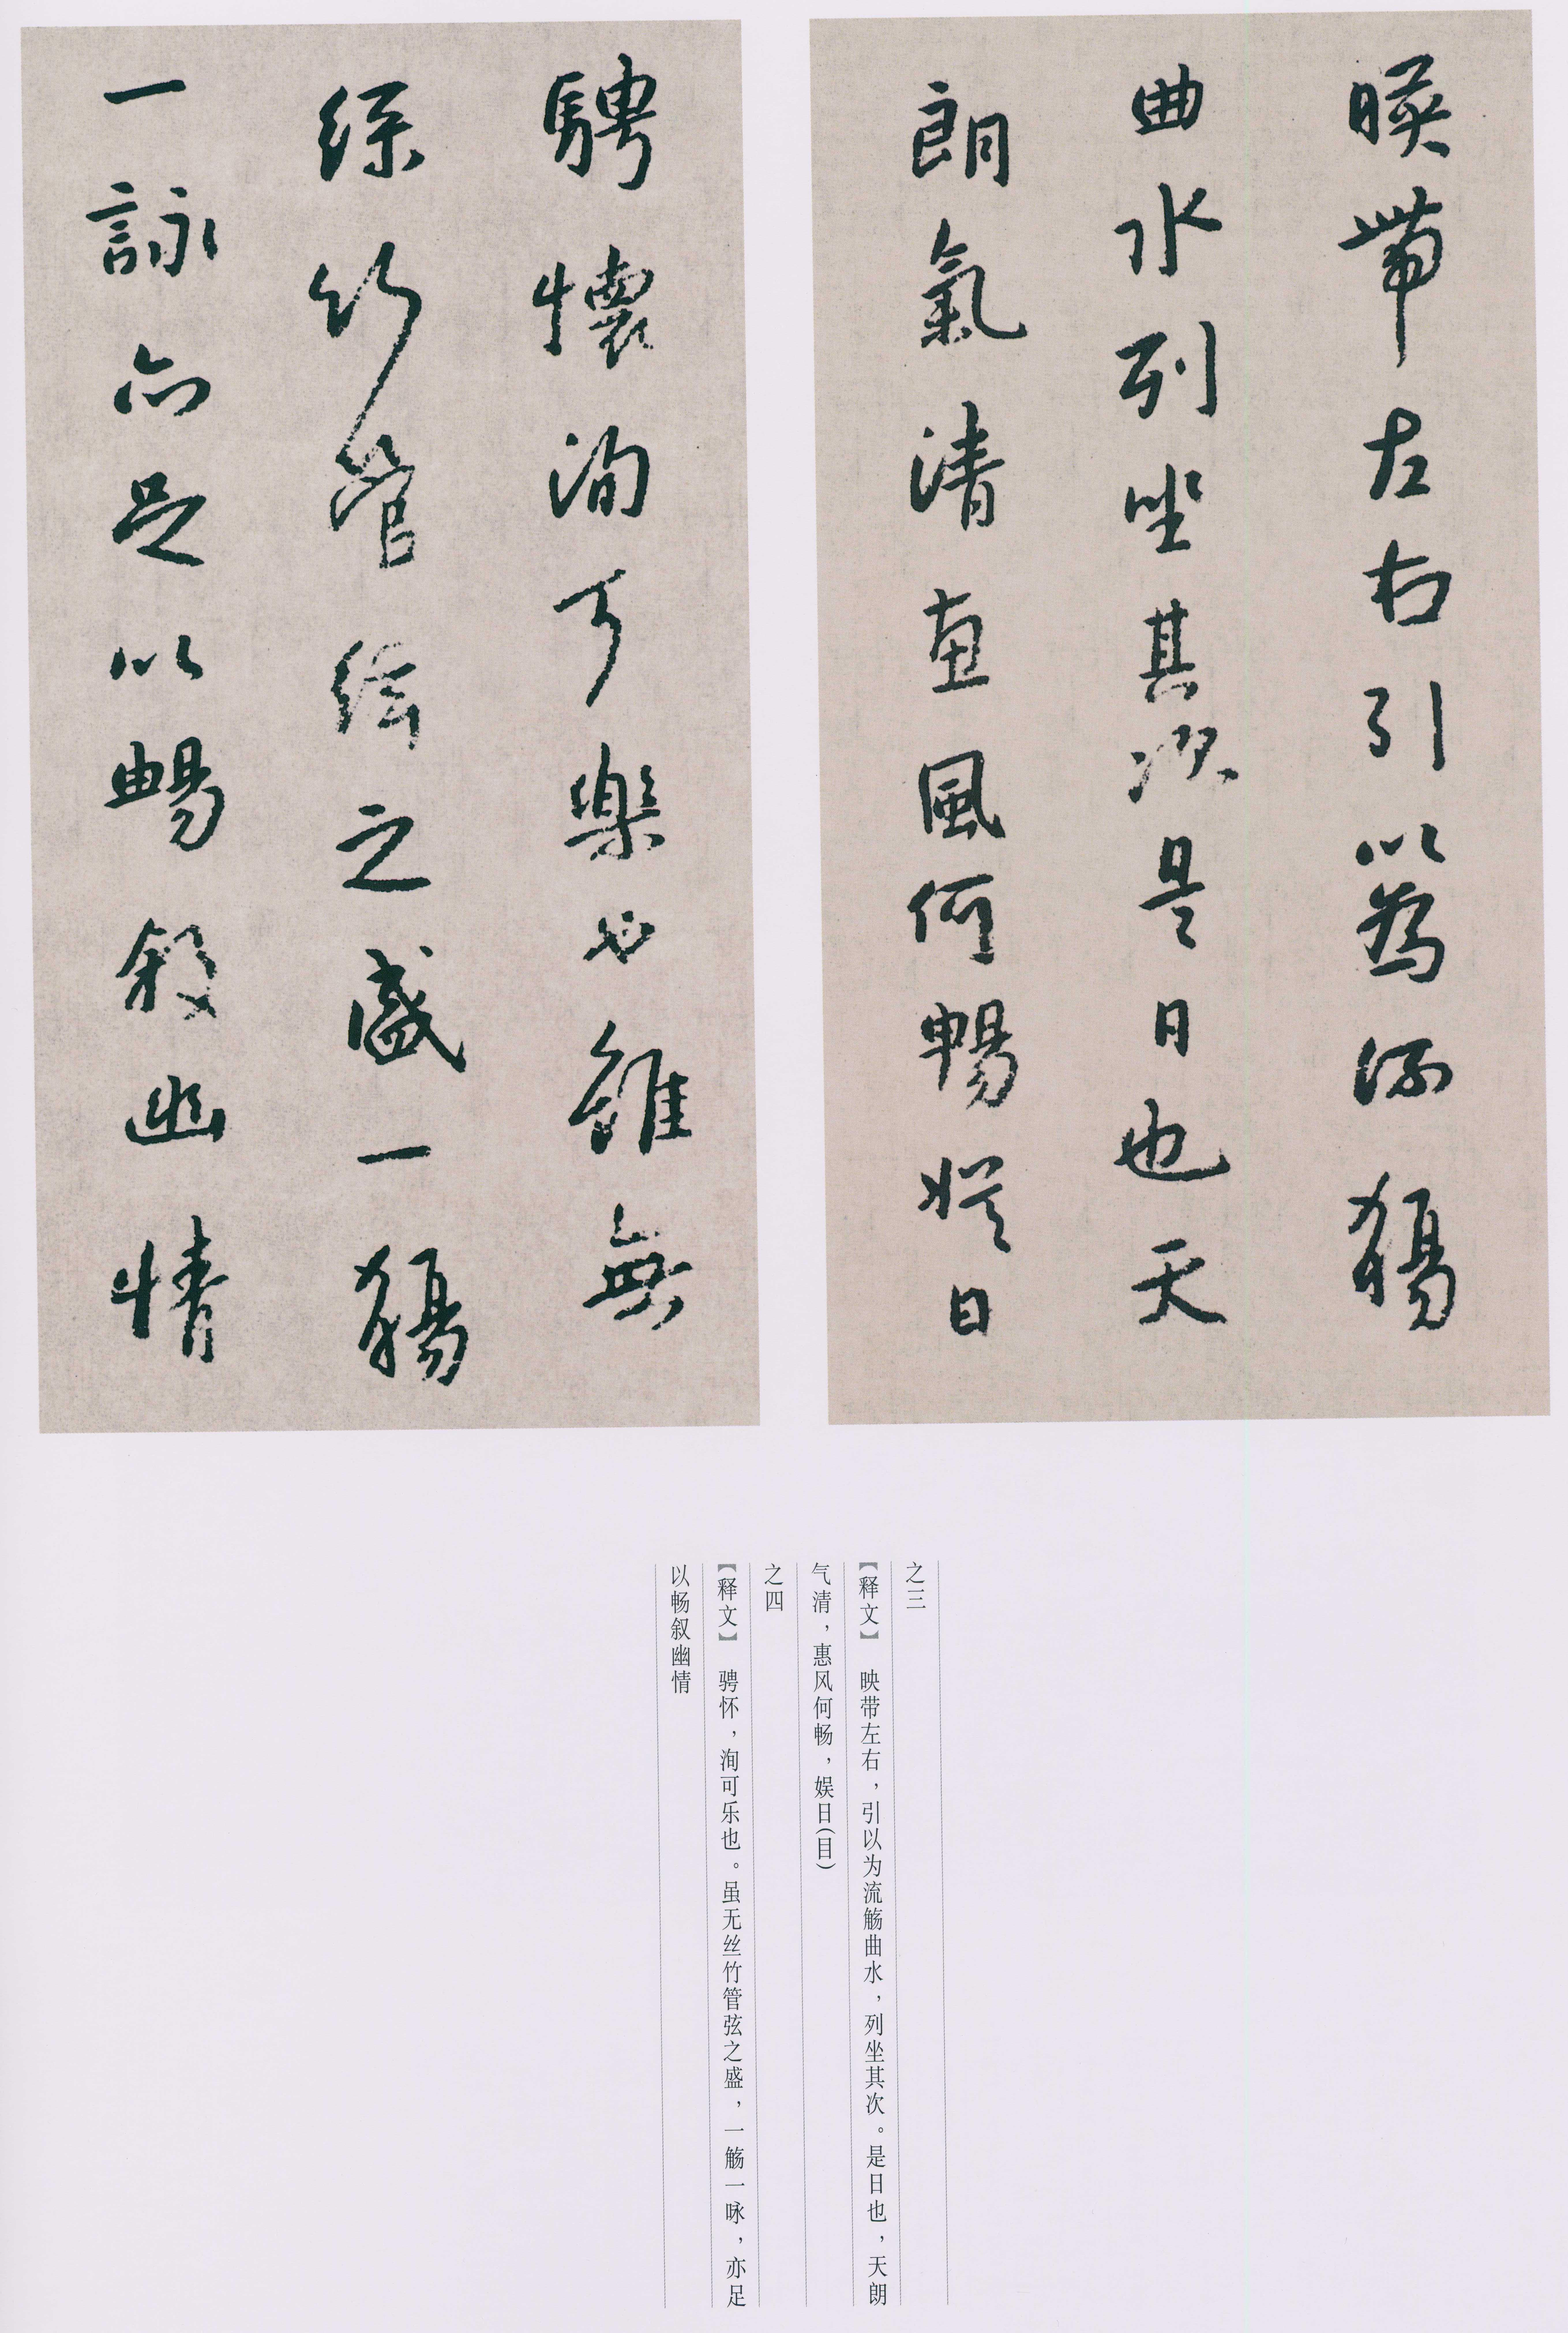 暎帶左右引以為流觴
曲水列坐其次是日也天
朗氣清惠風何暢娱日
騁懷洵可樂也雖無
絲竹管絃之盛一觴
一詠亦足以暢叙幽情
之三
【释文】 映带左右，引以为流觞曲水，列坐其次。是日也，天朗
气清，惠风何畅，娱日(目)
之四
【释文】 骋怀，洵可乐也。虽无丝竹管弦之盛，一觞一咏，亦足
以畅叙幽情